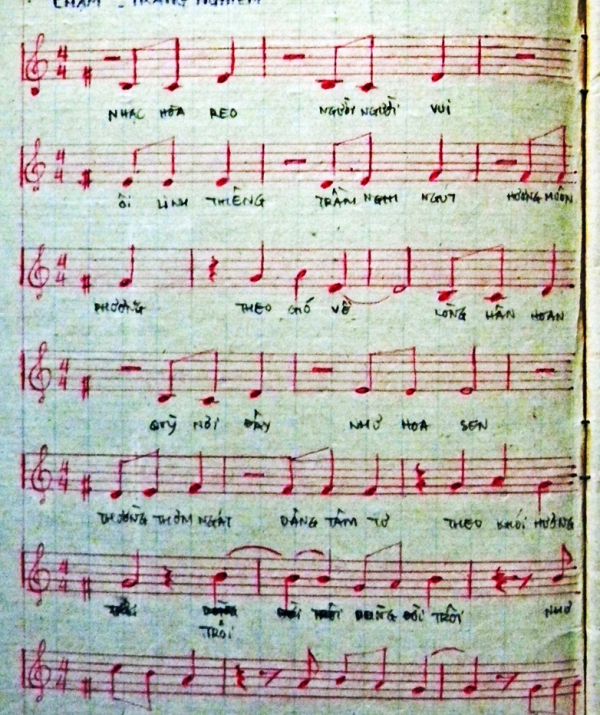 CHẬM - TRANG NGHIÊM
4/4
NHẠC HÒA REO NGƯỜI NGƯỜI VUI
4/4
ÔI LINH THIÊNG TRẦM NGHI NGÚT HƯƠNG MUÔN
4/4
PHƯƠNG THEO GIÓ VỀ LÒNG HÂN HOAN
4/4
QUỲ NƠI ĐÂY NHƯ HOA SEN
4/4
THƯỜNG THƠM NGÁT DÂNG TÂM TƯ THEO KHÓI HƯƠNG
4/4
TRÔI TRÔI NHƯ
4/4